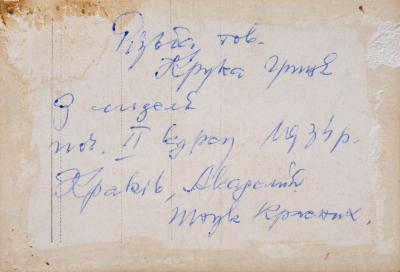 Різьба тов.
Крука Гриця
З моделі
поч. II курсу
Краків, Академія
Штук Красних.